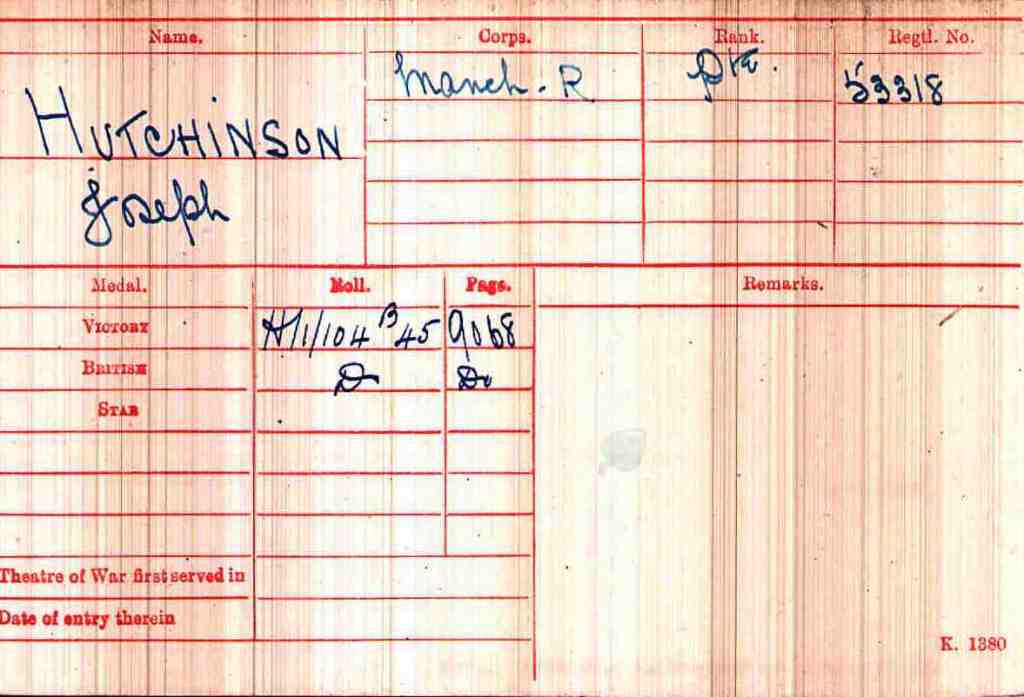 Name. Corps. Rank. Regtl. No.
Manch. R Pte. 53318
HUTCHINSON
Joseph
Medal. Roll. Page. Remarks.
VICTORY H/1/104 B45 9068
BRITISH Do Do
STAR
Theatre of War first served in
Date of entry therein
K. 1380